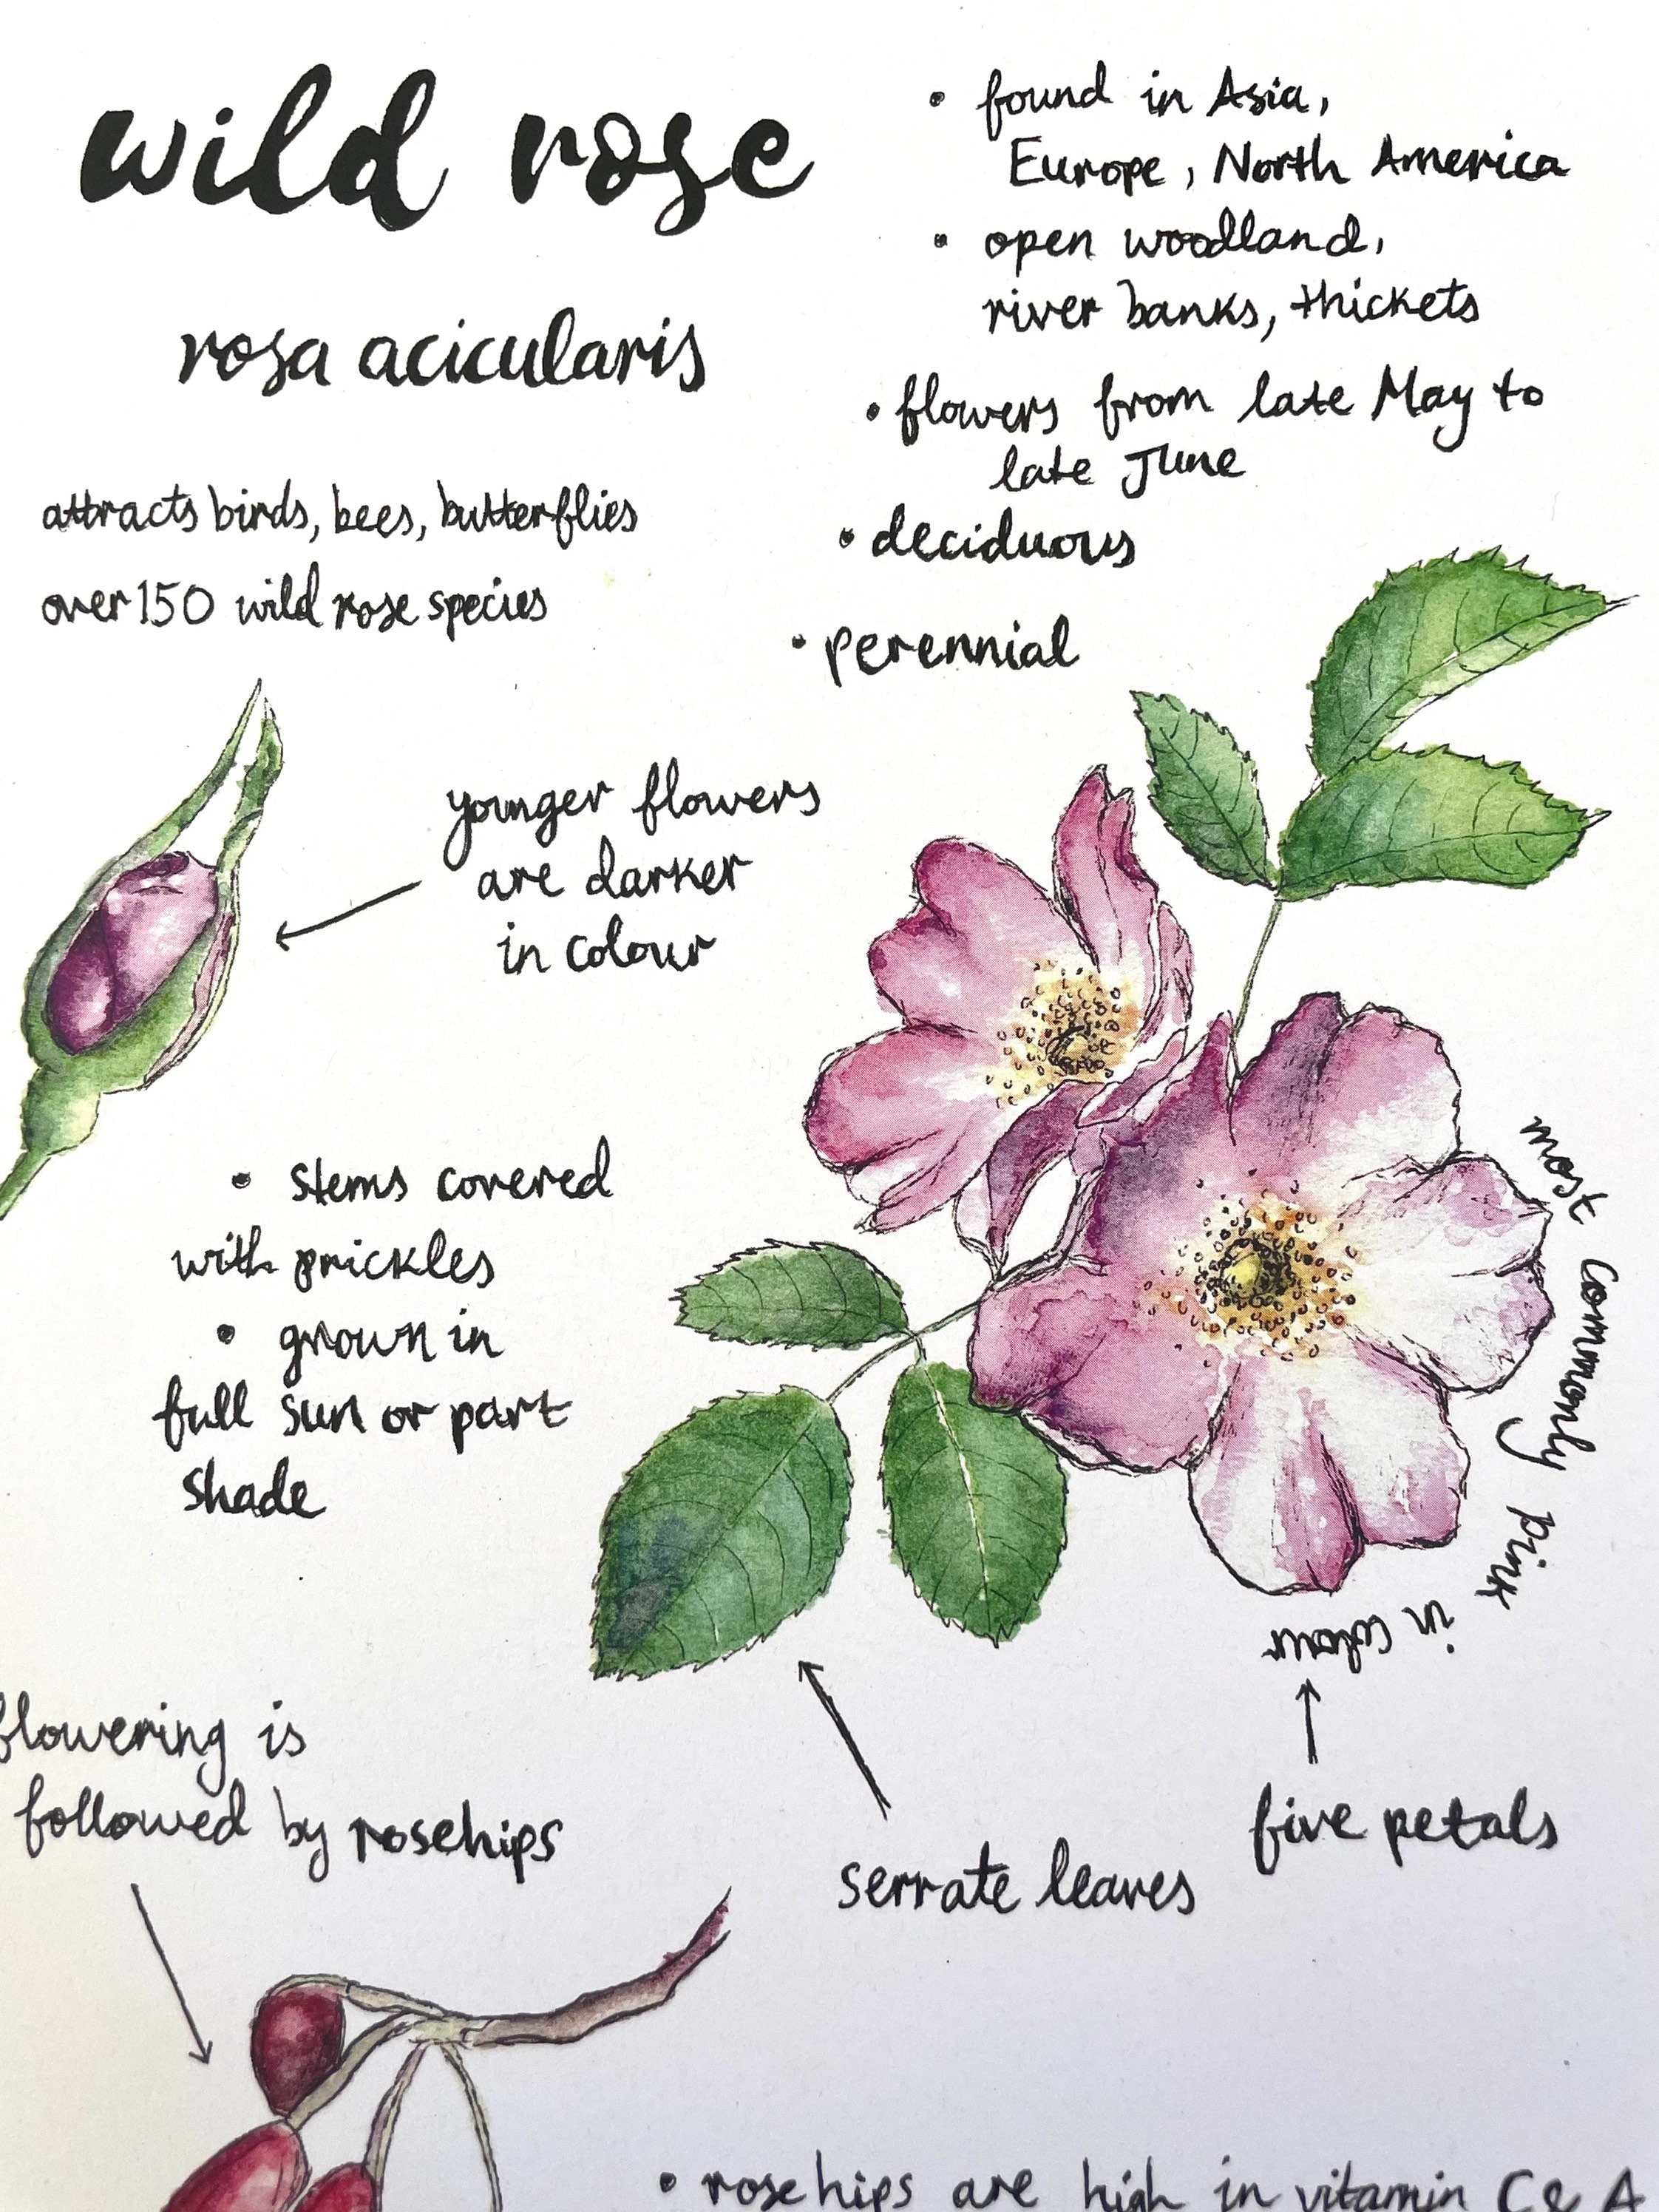 wild rose
rosa acicularis
attracts birds, bees, butterflies
over 150 wild rose species
• found in Asia,
Europe, North America
• open woodland,
river banks, thickets
• flowers from late May to
late June
• deciduous
• perennial
younger flowers
are darker
in colour
• stems covered
with prickles
• grown in
full sun or part
shade
most commonly pink in colour
five petals
serrate leaves
flowering is
followed by rosehips
• rosehips are high in vitamin C & A